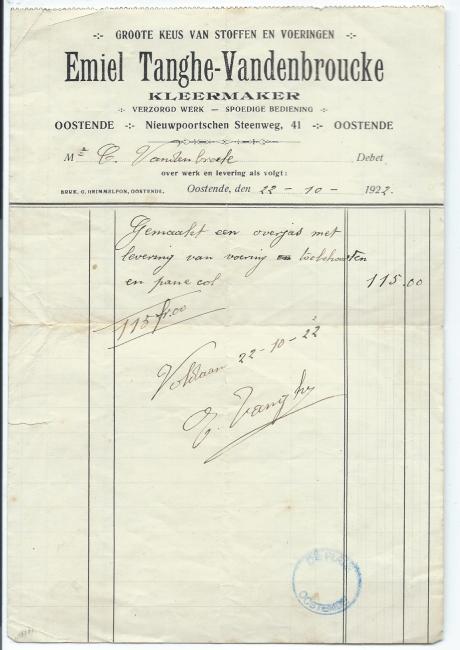 -:- GROOTE KEUS VAN STOFFEN EN VOERINGEN -:-
Emiel Tanghe-Vandenbroucke
KLEERMAKER
-:- VERZORGD WERK — SPOEDIGE BEDIENING -:-
OOSTENDE -:- Nieuwpoortschen Steenweg, 41 -:- OOSTENDE
Mr C. Vandenbroele Debet
over werk en levering als volgt:
BRUK. G. GRIMMELPON, OOSTENDE. Oostende, den 22 - 10 - 1922.
Gemaakt een overjas met
levering van voering en toebehooten
en pane col 115.00
115 fr.00
Voldaan 22-10-22
E. Tanghe
DE PLATE
OOSTENDE